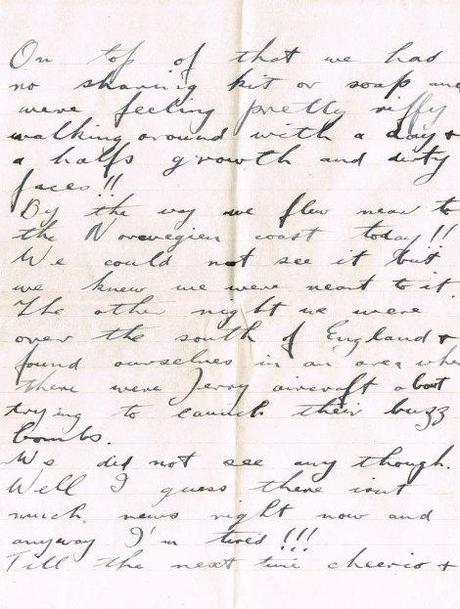 On top of that we had
no shaving kit or soap and
were feeling pretty niffy
walking around with a day +
a halfs growth and dirty
faces!!
By the way we flew near to
the Norwegien coast today!!
We could not see it but
we knew we were neart to it.
The other night we were
over the south of England +
found ourselves in an area wher
there were Jerry aircraft about
trying to launch their buzz
bombs.
We did not see any though.
Well I guess there isnt
much news right now and
anyway I'm tired!!!
Till the next time cheerio +